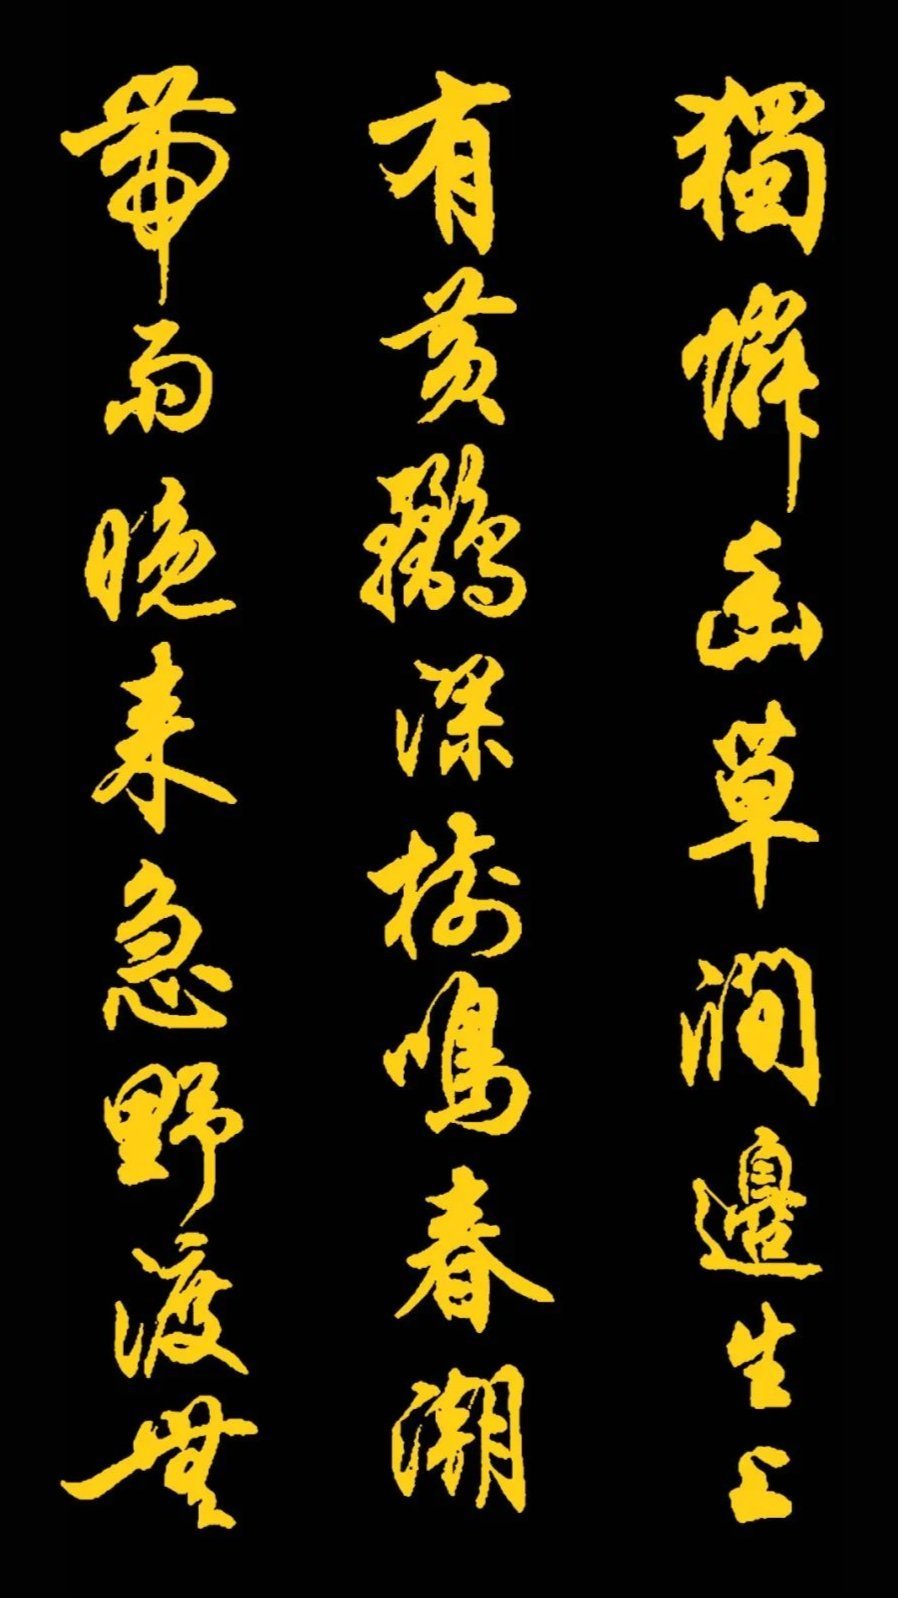 獨憐幽草澗邊生上
有黃鸝深樹鳴春潮
帶雨晚來急野渡無